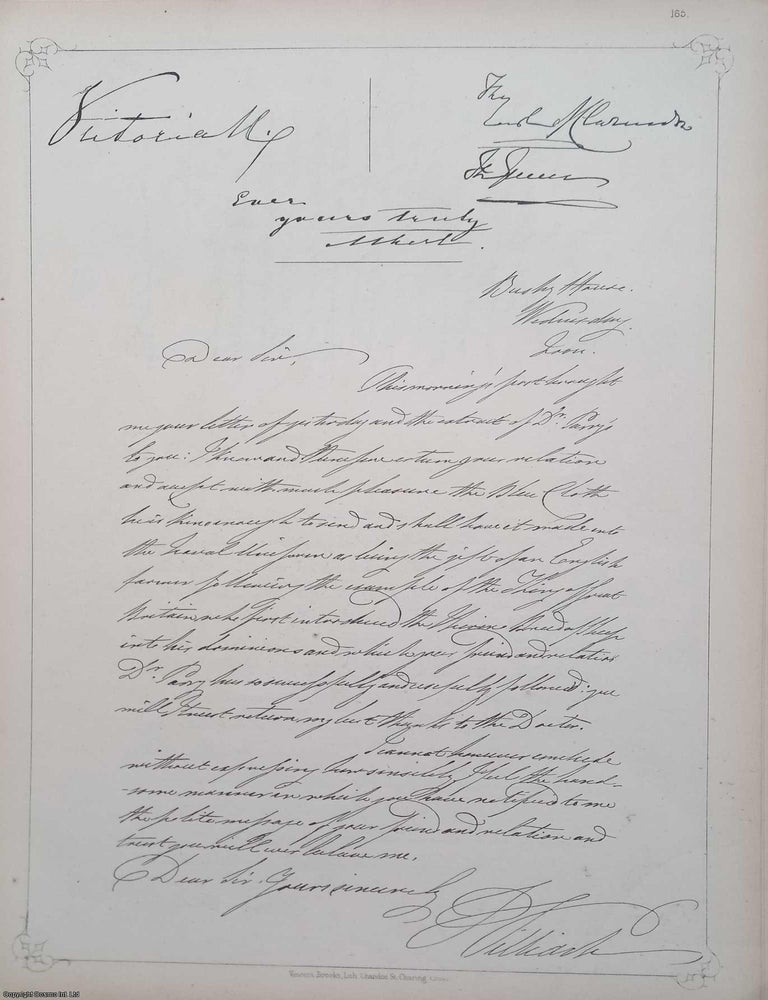 165.
Victoria
The
Earl of Clarendon
The Queen
Ever
yours truly
Albert.
Bushy House.
Wednesday
Noon.
Dear Sir,
This morning's post brought
me your letter of yesterday and the extract of Dr. Parry's
to you: I know and therefore esteem your relation
and accept with much pleasure the Blue Cloth
he is kind enough to send and shall have it made into
the Naval Uniform as being the gift of an English
farmer following the example of the King of Great
Britain who first introduced the Merino breed of sheep
into his dominions and which your friend and relation
Dr. Parry has so successfully and usefully followed: you
will I trust return my best thanks to the Doctor.
I cannot however conclude
without expressing how sincerely I feel the hand-
-some manner in which you have notified to me
the polite message of your friend and relation and
trust you will ever believe me,
Dear Sir, Yours sincerely
William
Vincent Brooks, Lith. Chandos St. Charing Cross.
Copyright Cosmo Int. Ltd